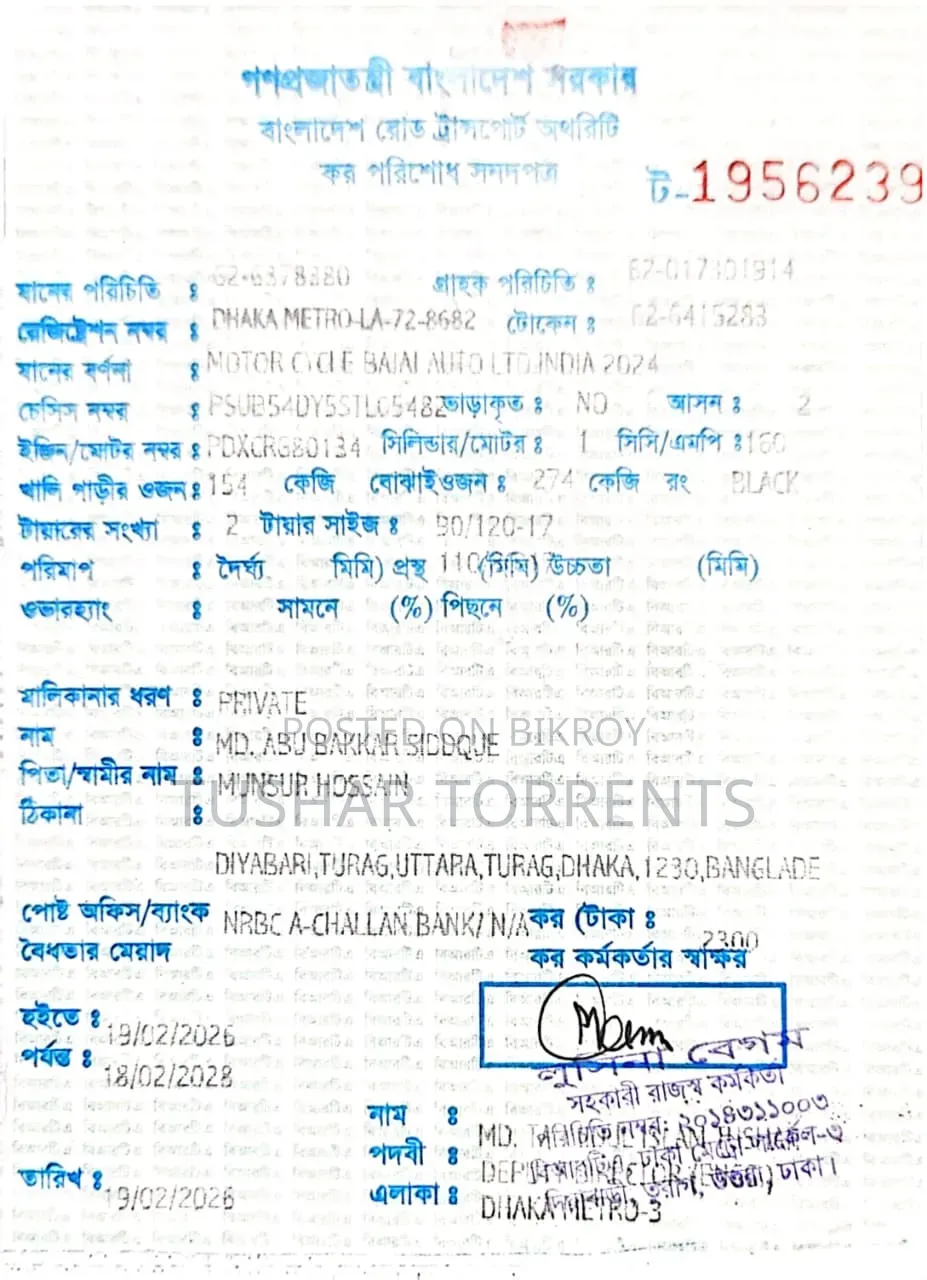 গণপ্রজাতন্ত্রী বাংলাদেশ সরকার
বাংলাদেশ রোড ট্রান্সপোর্ট অথরিটি
কর পরিশোধ সনদপত্র
ট-1956239
যানের পরিচিতি : 62-6378380 গ্রাহক পরিচিতি : 62-017301914
রেজিস্ট্রেশন নম্বর : DHAKA METRO-LA-72-8682 টোকেন : 62-6415283
যানের বর্ণনা : MOTOR CYCLE BAJAJ AUTO LTD.INDIA 2024
চেসিস নম্বর : PSUB54DY5STL05482 ভাড়াকৃত : NO আসন : 2
ইঞ্জিন/মোটর নম্বর : PDXCRG80134 সিলিন্ডার/মোটর : 1 সিসি/এমপি : 160
খালি গাড়ীর ওজন : 154 কেজি বোঝাইওজন : 274 কেজি রং BLACK
টায়ারের সংখ্যা : 2 টায়ার সাইজ : 90/120-17
পরিমাপ : দৈর্ঘ্য মিমি) প্রস্থ 110 (মিমি) উচ্চতা (মিমি)
ওভারহ্যাং : সামনে (%) পিছনে (%)
মালিকানার ধরণ : PRIVATE
POSTED ON BIKROY
নাম : MD. ABU BAKKAR SIDDQUE
পিতা/স্বামীর নাম : MUNSUR HOSSAIN
TUSHAR TOPRENTS
ঠিকানা :
DIYABARI,TURAG,UTTARA,TURAG,DHAKA,1230,BANGLADE
পোষ্ট অফিস/ব্যাংক NRBC A-CHALLAN BANK/ N/A কর (টাকা : 2300
বৈধতার মেয়াদ কর কর্মকর্তার স্বাক্ষর
হইতে : 19/02/2026
পর্যন্ত : 18/02/2028
বেগম
সহকারী রাজস্ব কর্মকর্তা
পরিচিতি নম্বর: ২০১৪৩১১০০৩
নাম : MD.
ঢাকা মেট্রো-সার্কেল-৩
পদবী :
তুরাগ, উত্তরা, ঢাকা।
তারিখ : 19/02/2026
এলাকা : DHAKA METRO-3